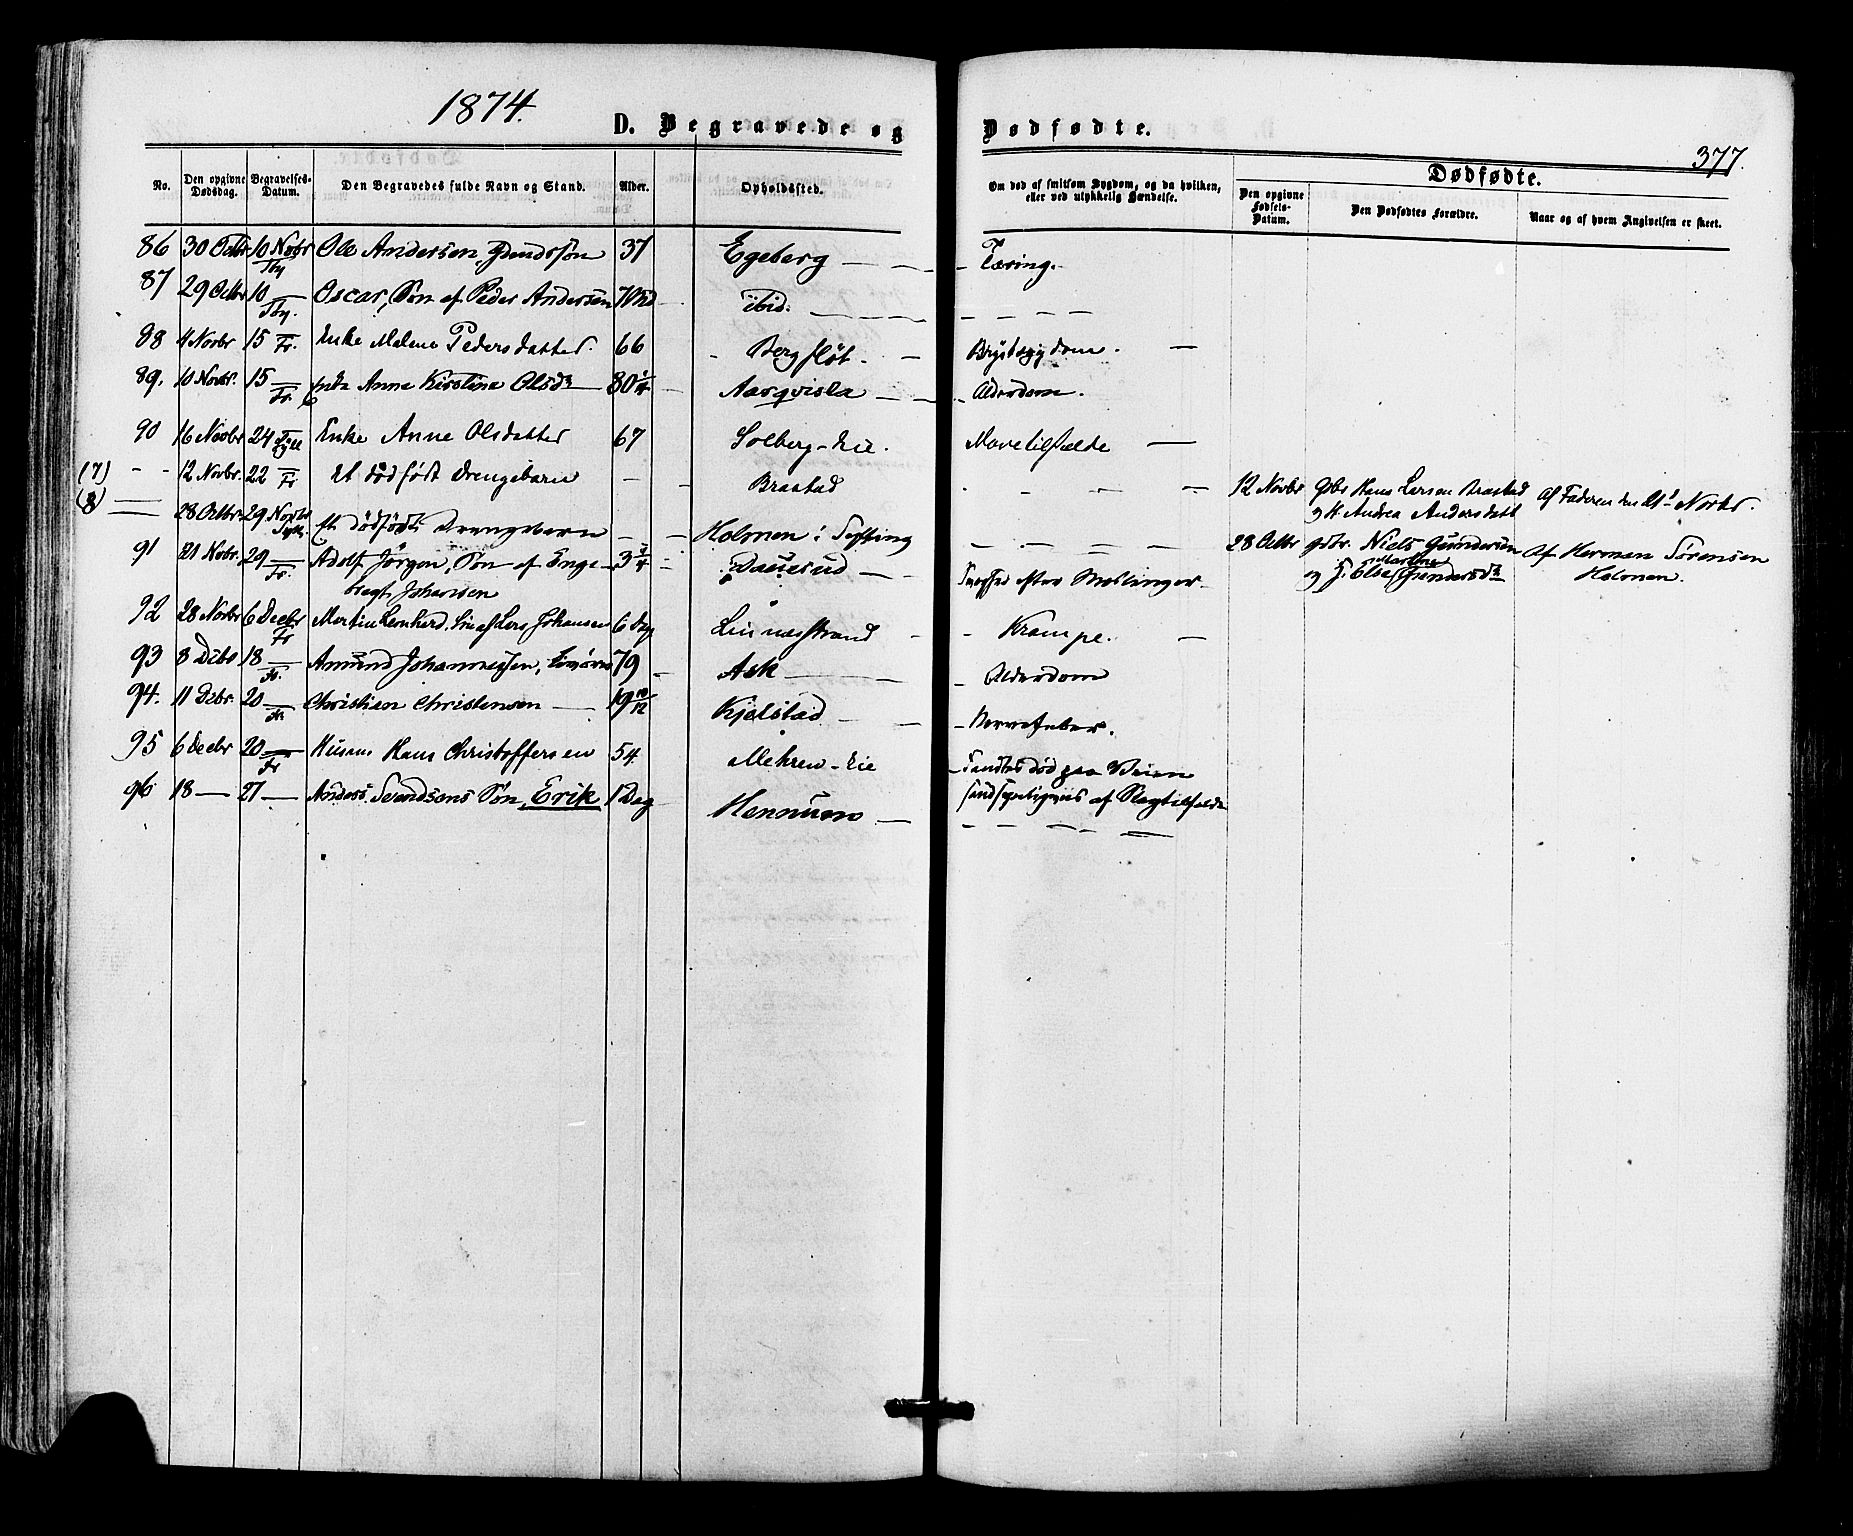 1874.
D. Begravede og Dødfødte.
377.
No. Den opgivne Dødsdag. Begravelses-Datum. Den Begravedes fulde Navn og Stand. Alder. Opholdssted. Om død af smitsom Sygdom, og da hvilken, eller ved ulykkelig Hændelse. Dødfødte. Den opgivne Fødsels-Datum. Den Dødfødtes Forældre. Naar og af hvem Angivelsen er skeet.
86 30 Octbr 10 Novbr Ole Andersen, 37 Egeberg — — Tæring.
87 29 Octbr 10 — Oscar, Søn af Peder Andersen ibid. — — — —
88 4 Novbr 15 — Fr. Enke Malene Pedersdatter. 66 Bergfløt. — Brystsygdom. —
89. 10 Novbr. 15 — Fr. Enke Anne Kirstine Olsd. 80 1/4 — Aasqvisla — — Alderdom.
90 16 Novbr 24 — Enke Anne Olsdatter 67 Solberg-Eie. Mavetilfælde —
(7) - - 12 Novbr. 22 — Fr Et dødfødt Drengebarn — — Braatad — — — 12 Novbr Gbr. Hans Larsen Braatad
og H. Andrea Andersdatt Af Faderen den 21. Novbr.
(8) — 28 Octbr. 29 Novbr Et dødfødt Drengebarn — — Holmen i Sylling — — — 28 Octbr gdbr. Niels Gundersen
og Else Martine Gundersd. Af Herman Sørensen
Holmen.
91 21 Novbr. 29 — Fr. Adolf Jørgen, Søn af Enge- 3 3/4 — — efter Meslinger
bregt Johansen
92 28 Novbr 6 Decbr Fr Martin Lenhard. Søn af Lars Johansen 6 Dag Linnesstrand — — Krampe. —
93 8 Dcbr 18 — Fr. Amund Johannessen, 79 — Ask — — — Alderdom
94. 11 Dcbr. 20 — Fr Christian Christensen — 19 10/12 Kjelstad — — — Nervefeber.
95 6 Decbr 20 — Fr Husm. Hans Christoffersen 54. Mehren-Eie — Fandtes død paa Veien
sandsynligviis af Slagtilfælde
96 18 — 27 — Anders Svendsens Søn, Erik 1 Dag — Hennum — — — — —